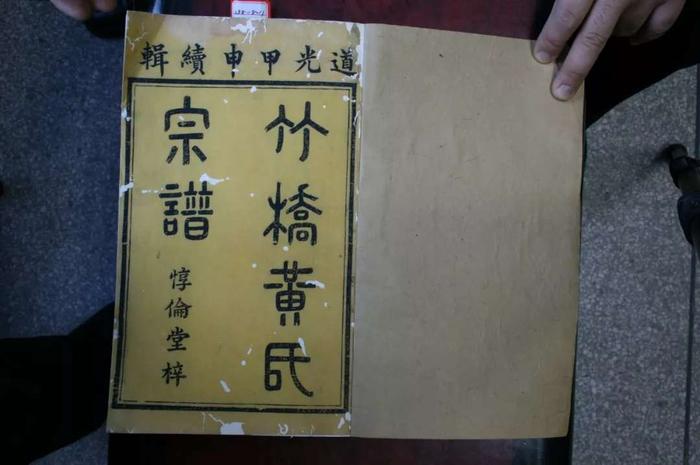 道光甲申續輯
竹橋黃氏
宗譜
惇倫堂梓